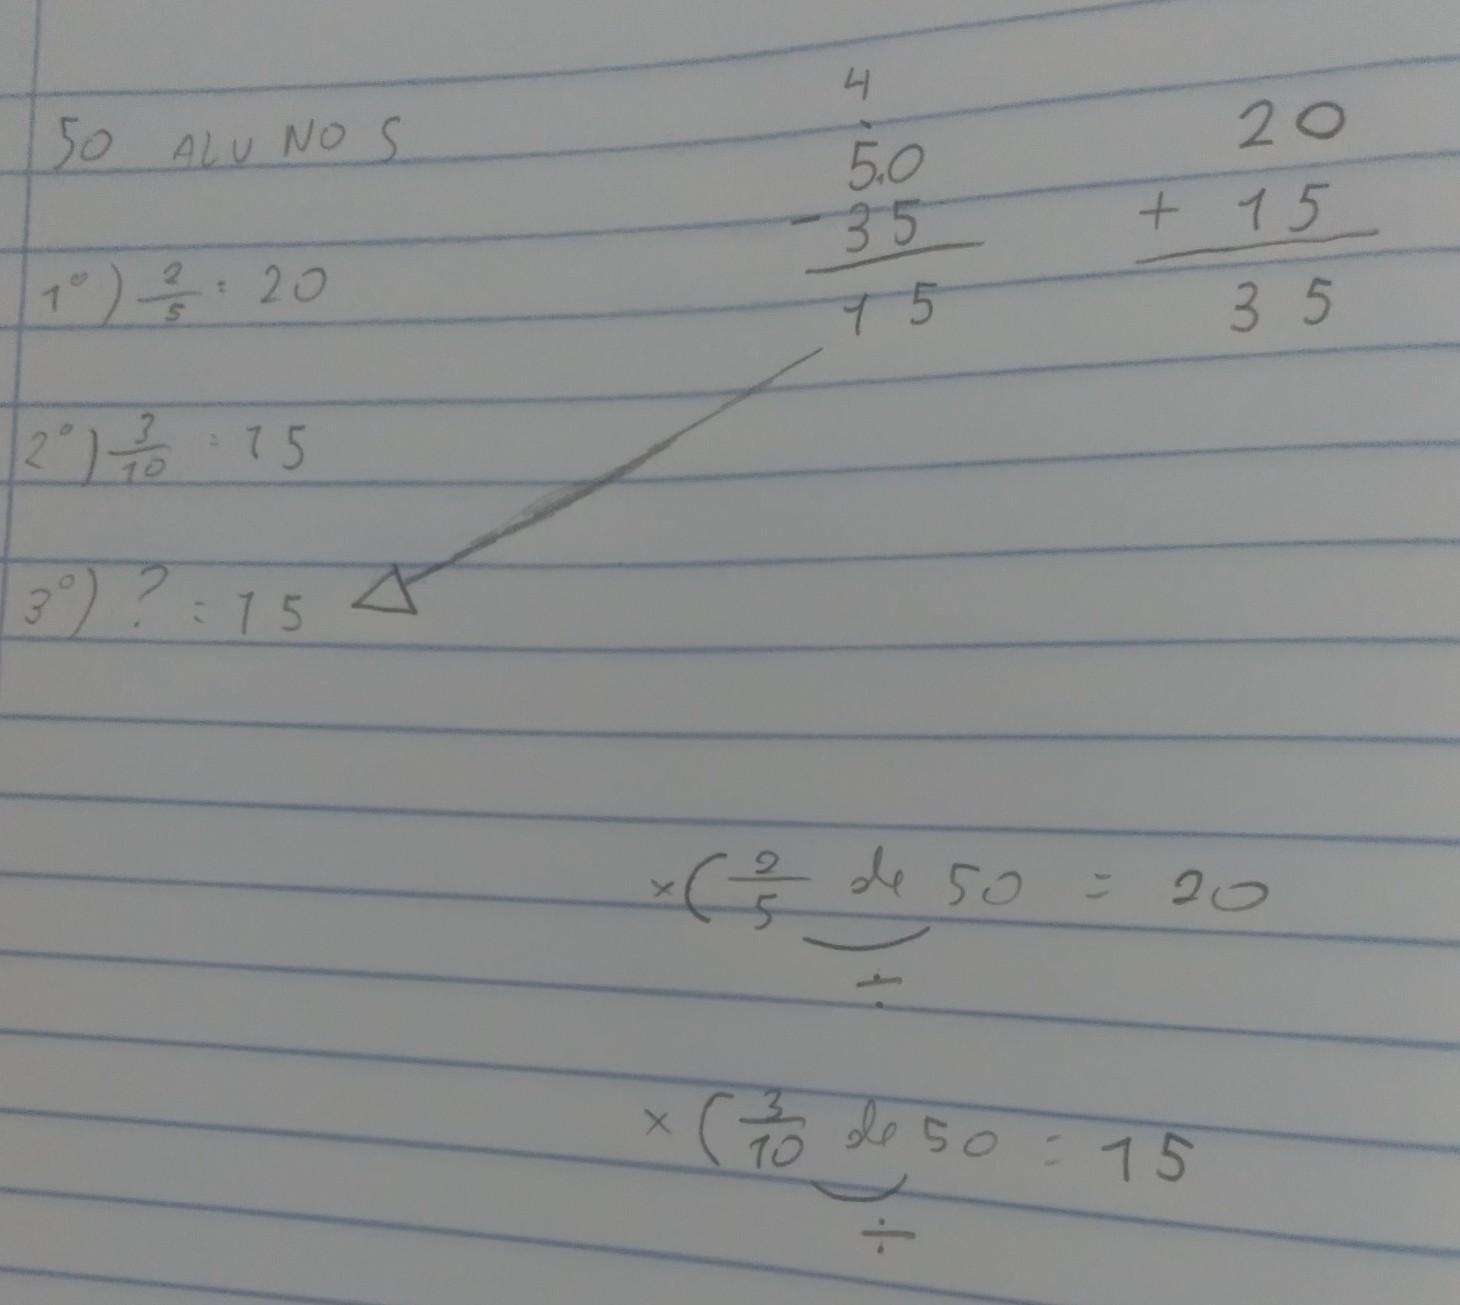 50 ALUNOS
1º) 2/5 = 20
2º) 3/10 = 15
3º) ? = 15
4
50
- 35
15
20
+ 15
35
× ( 2/5 de 50 = 20
÷
× ( 3/10 de 50 = 15
÷